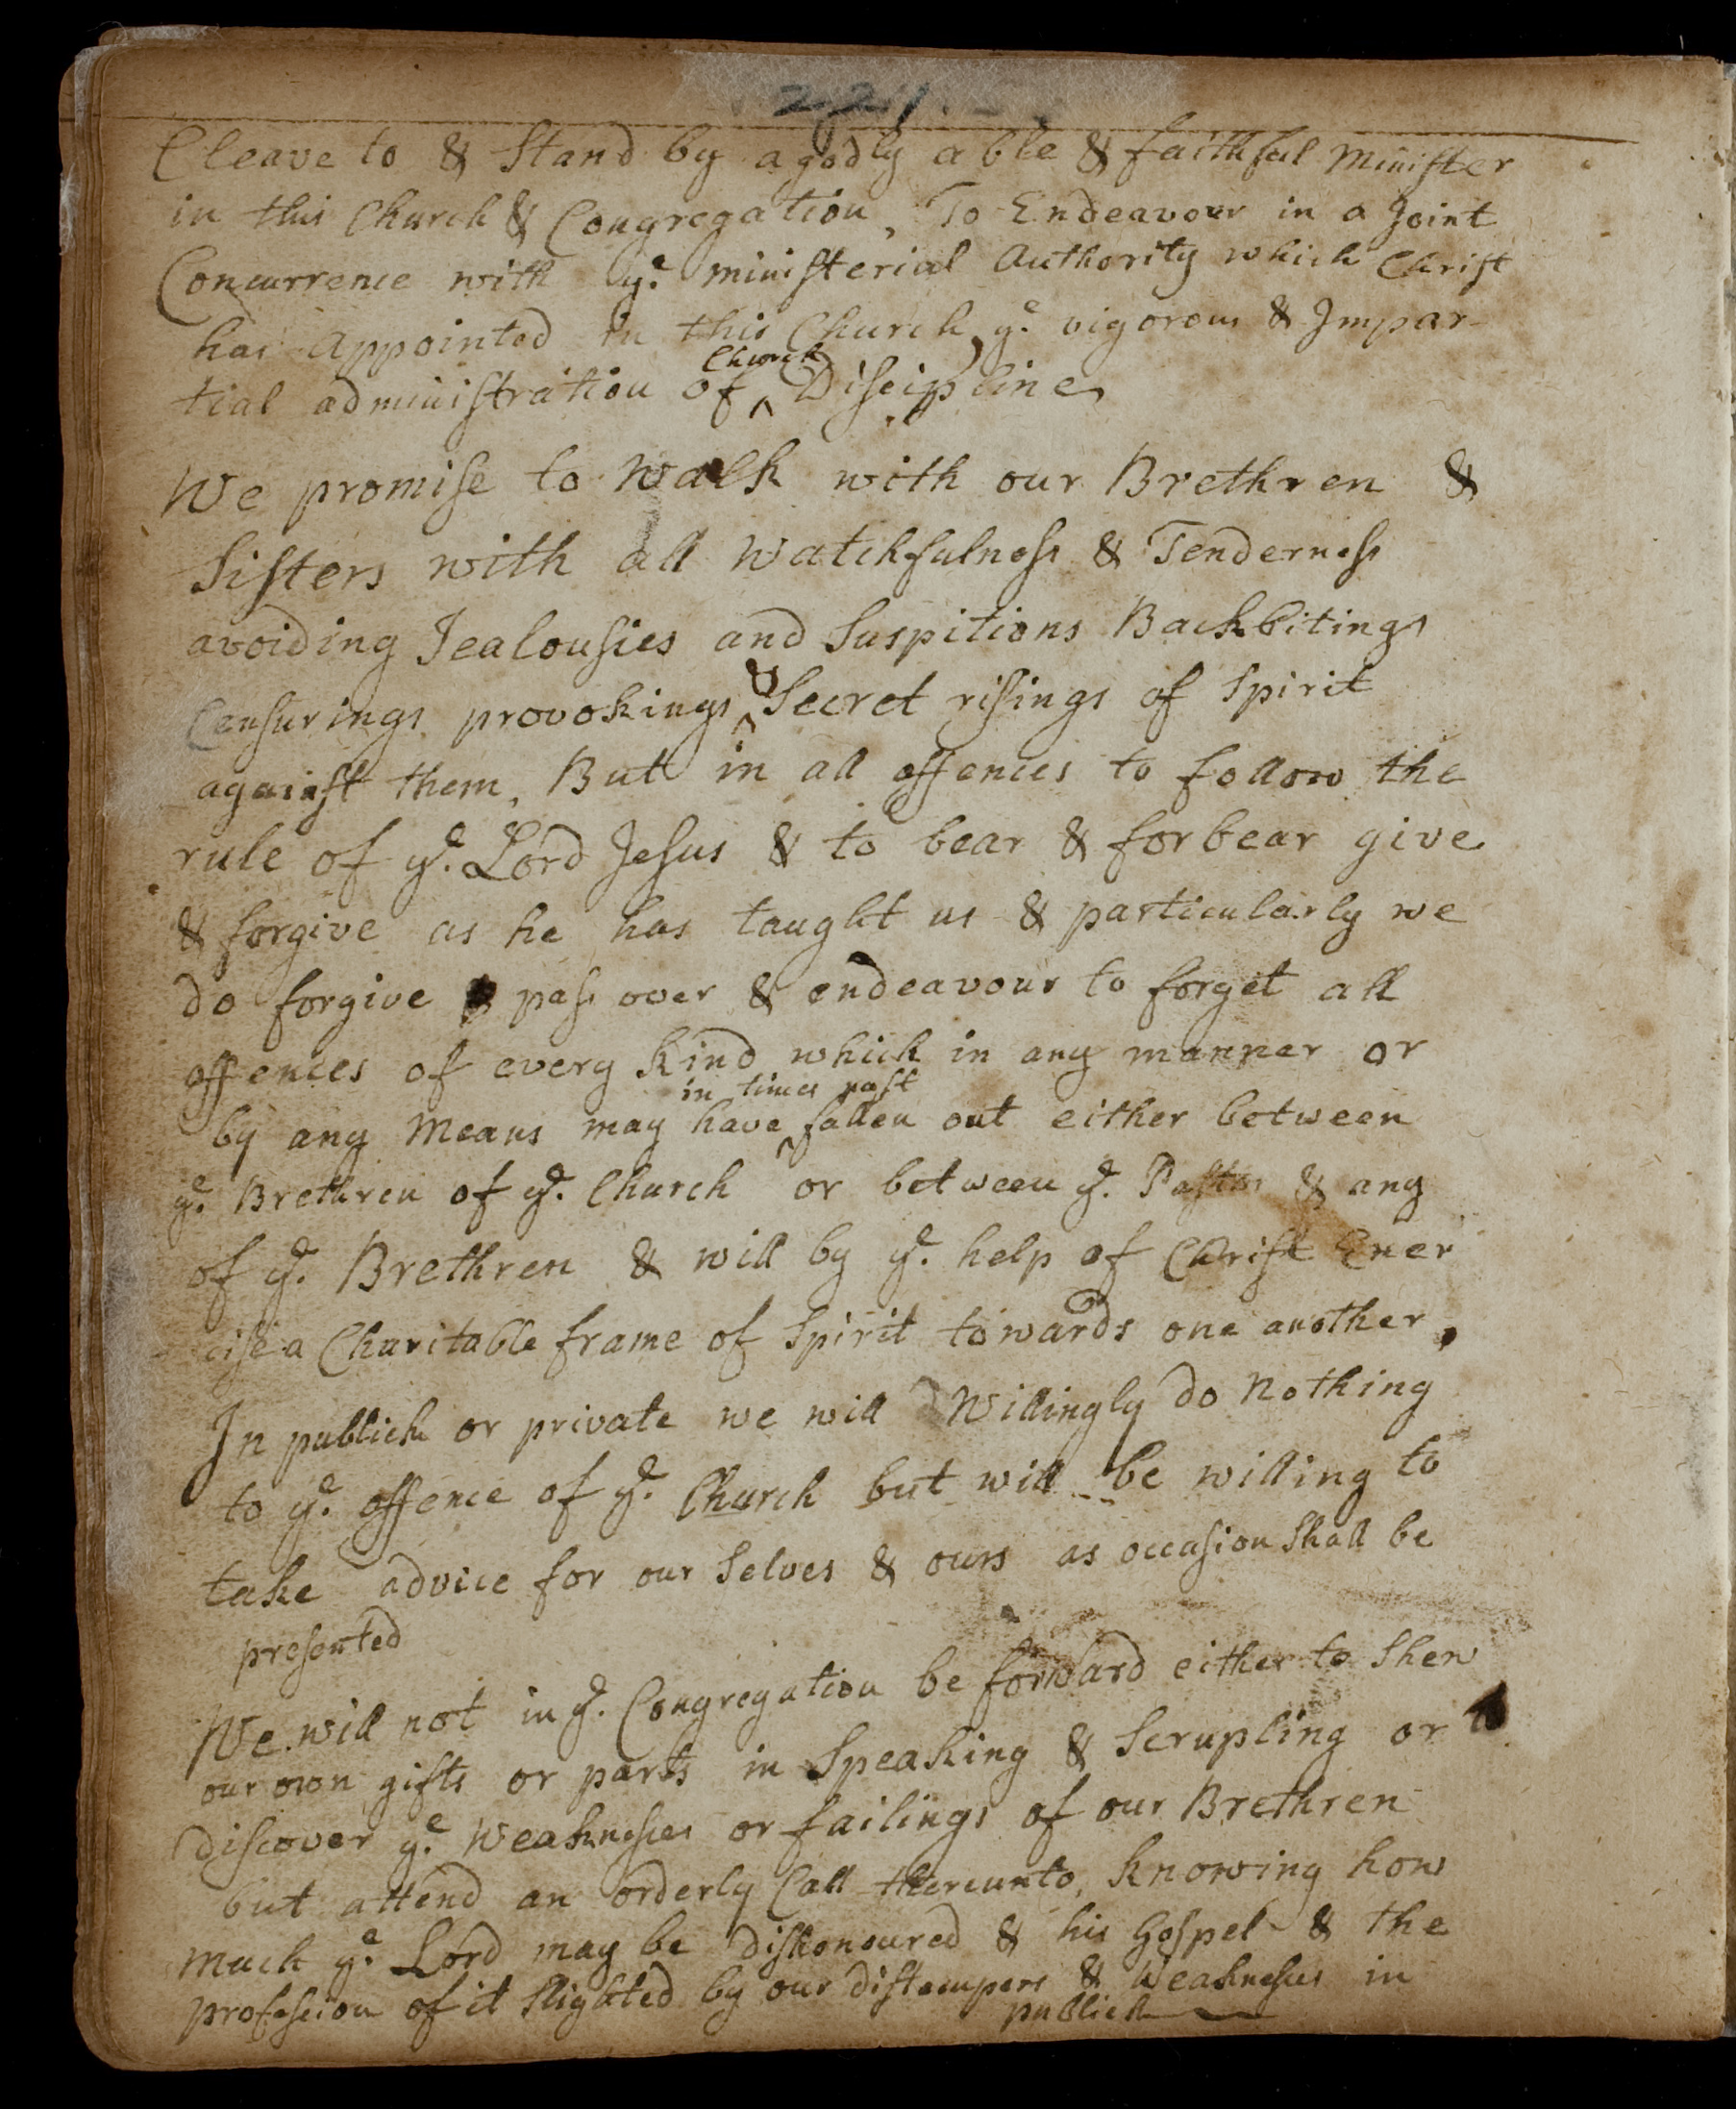 221.
Cleave to & Stand by a godly able & faithful Minister
in this Church & Congregation, To Endeavour in a Joint
Concurrence with yᵉ. ministerial Authority which Christ
has Appointed in this Church, yᵉ vigorous & Impar-
tial administration of ^Church Discipline
We promise to Walk with our Brethren &
Sisters with all Watchfulness & Tenderness
avoiding Jealousies and Suspitions Backbitings
Censurings provokings ^& Secret risings of Spirit
against them, But in all offences to follow the
rule of yᵉ. Lord Jesus & to bear & forbear give
& forgive as he has taught us & particularly we
do forgive pass over & endeavour to forget all
offences of every Kind which in any manner or
by any Means may have ^in times past fallen out either between
yᵉ. Brethren of yᵉ. Church or between yᵉ. Pastor & any
of yᵉ. Brethren & will by yᵉ. help of Christ Exer
cise a Charitable frame of Spirit towards one another,
In publick or private we will Willingly do Nothing
to yᵉ. offence of yᵉ. Church but will be willing to
take advice for our Selves & ours as occasion Shall be
presented
We will not in yᵉ. Congregation be forward either to Shew
our own gifts or parts in Speaking & Scrupling or
Discover yᵉ. Weaknesses or failings of our Brethren
but attend an orderly Call thereunto, Knowing how
Much yᵉ. Lord may be Dishonoured & his Gospel & the
profession of it Slighted by our Distempers & Weaknesses in
publick